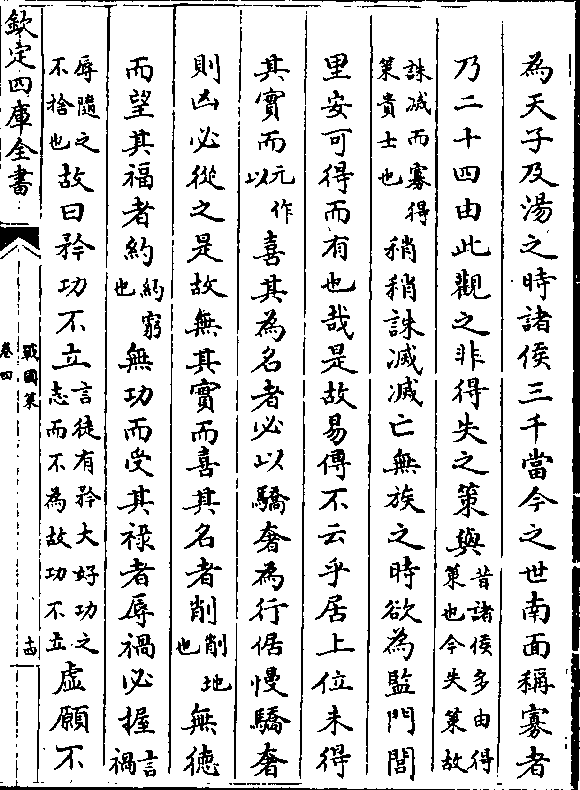 為天子及湯之時諸侯三千當今之世南面稱寡者
乃二十四由此觀之非得失之策與昔諸侯多由得策也今失策故
誅滅而寡得策貴士也稍稍誅滅滅亡無族之時欲為監門閭
里安可得而有也哉是故易傳不云乎居上位未得
其實而元作以喜其為名者必以驕奢為行倨慢驕奢
則凶必從之是故無其實而喜其名者削削地也無德
而望其福者約約窮也無功而受其祿者辱禍必握言禍
辱隨之不捨也故曰矜功不立言徒有矜大好功之志而不為故功不立虛願不
欽定四庫全書
戰國策
卷四
十四